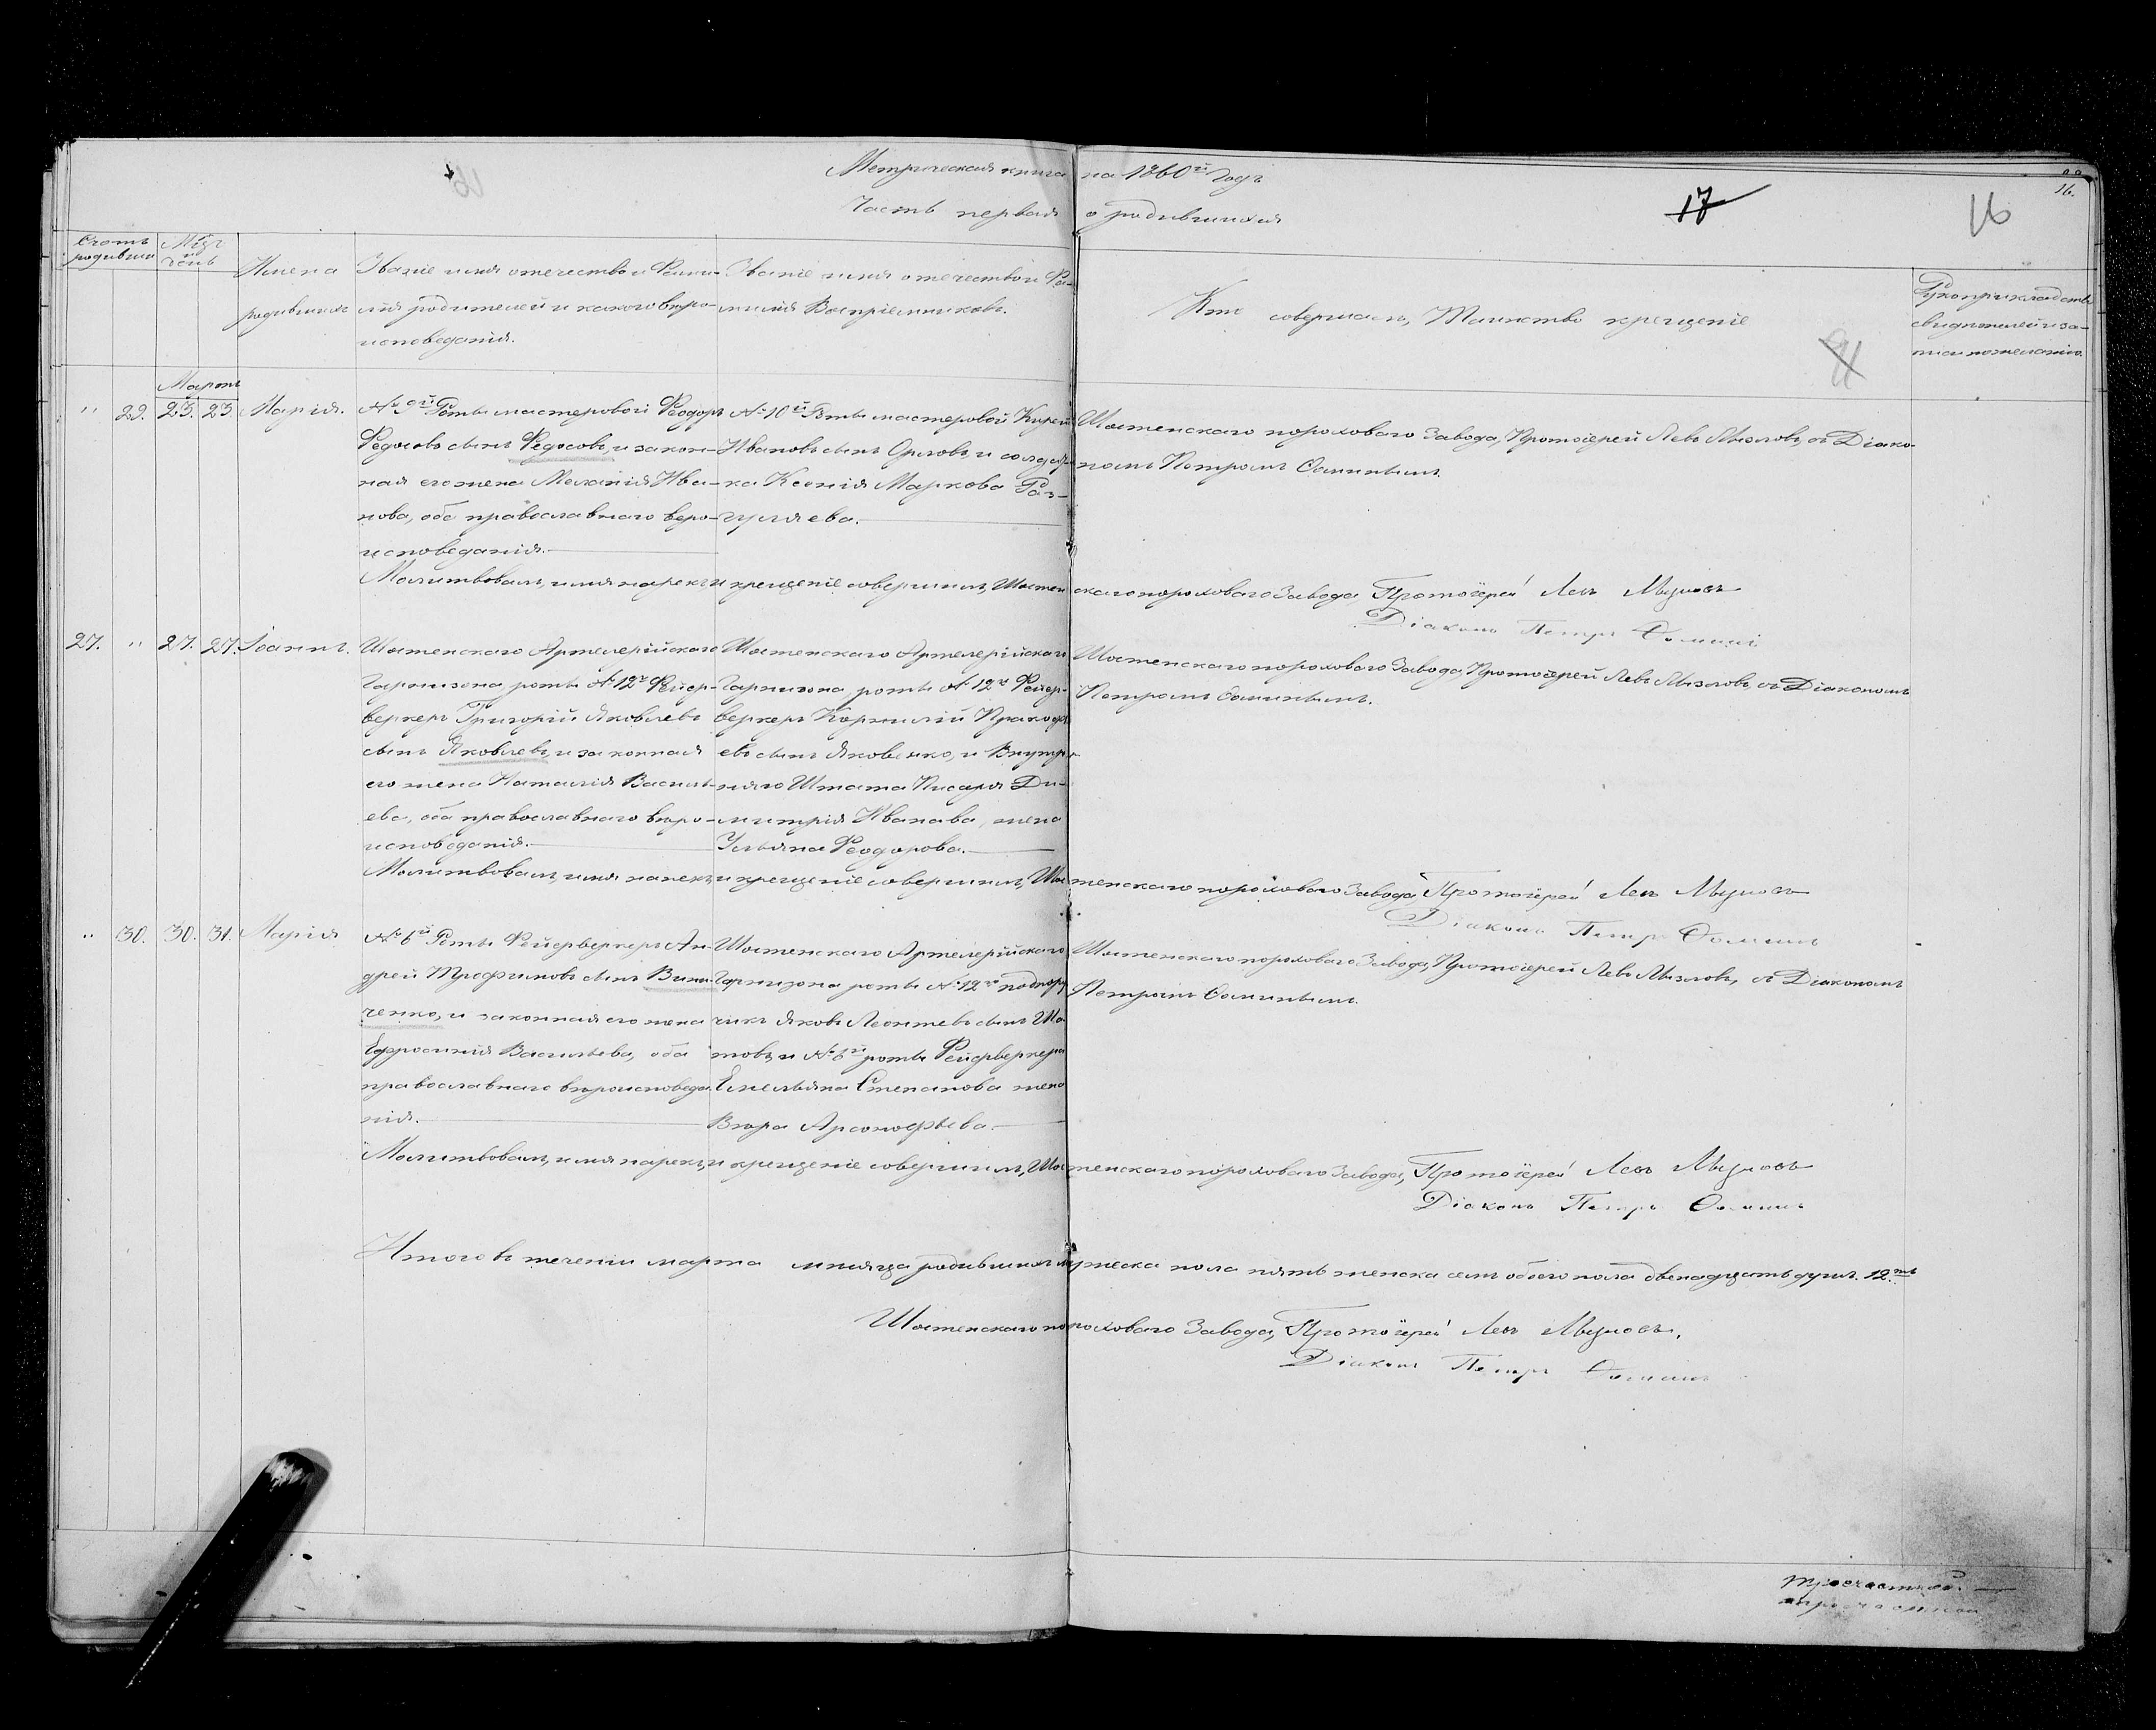 Метрическая книга на 1860й Годъ
Часть первая о родившихся
17
16
16.
Счотъ родивши
Мѣц и день
Имена родившихъ
Званіе имя отечество и Фами-
лія родителей и какого вѣро-
исповеданія.
Званіе имя отечество и Фа-
милія Воспріемниковъ.
Кто совершалъ, Таинство крещеніе
Рукоприкладство
свидѣтелей и за-
писи по желанію.
Мартъ
" 29. 23. 23 Марія.
№ 9й Роты мастеровой Феодоръ
Федосовъ сынъ Федосовъ, и закон-
ная его жена Меланія Ива-
нова, обе православнаго веро-
исповеданія.
№ 10й Роты мастеровой Кирей
Ивановъ сынъ Орловъ и солдат-
ка Ксенія Маркова Раз-
гуляева.
Шостенскаго пороховаго Завода, Протоіерей Левъ Мызловъ, съ Діако-
номъ Петромъ Ѳоминымъ.
Молитвовалъ, имя нарекъ и крещеніе совершилъ, Шостенскаго пороховаго Завода, Протоіерей Левъ Мызловъ
Діаконъ Петръ Ѳоминъ
27. " 27. 27. Іоаннъ.
Шостенскаго Артелерійскаго
Гарнизона роты № 12й Фейер-
веркеръ Григорій Яковлевъ
сынъ Яковлевъ, и законная
его жена Наталія Василь-
ева, оба православнаго вѣро-
исповеданія.
Шостенскаго Артелерійскаго
Гарнизона роты № 12й Фейер-
веркеръ Корнилій Пракофі
евъ сынъ Яковенко, и Внутре
няго Штата Писаря Ди-
митрія Иванава, жена
Ульяна Феодорова.
Шостенскаго пороховаго Завода Протоіерей Левъ Мызловъ, съ Діакономъ
Петромъ Ѳоминымъ.
Молитвовалъ, имя нарекъ, и крещеніе совершилъ, Шостенскаго пороховаго Завода, Протоіерей Левъ Мызловъ
Діаконъ Петръ Ѳоминъ
" 30. 30. 31. Марія
№ 6й Роты Фейерверкеръ Ан-
дрей Трофимовъ сынъ Вини-
ченко, и законная его жена
Ефросинія Васильева, оба
православнаго вѣроисповеда
нія.
Шостенскаго Артелерійскаго
Гарнизона роты № 12й подпору
чикъ Яковъ Леонтевъ сынъ
товъ, и № 6й роты Фейерверкера
Емельяна Степанова жена
Вѣра Арсонофьева.
Шостенскаго пороховаго Завода, Протоіерей Левъ Мызловъ, съ Діакономъ
Петромъ Ѳоминымъ.
Молитвовалъ, имя нарекъ, и крещеніе совершилъ, Шостенскаго пороховаго Завода, Протоіерей Левъ Мызловъ
Діаконъ Петръ Ѳоминъ
Итого въ теченіи марта мѣсяца родившихъ мужеска пола пять женска семь обоего пола двенадцать душъ. 12.ть
Шостенскаго пороховаго Завода, Протоіерей Левъ Мызловъ.
Діаконъ Петръ Ѳоминъ